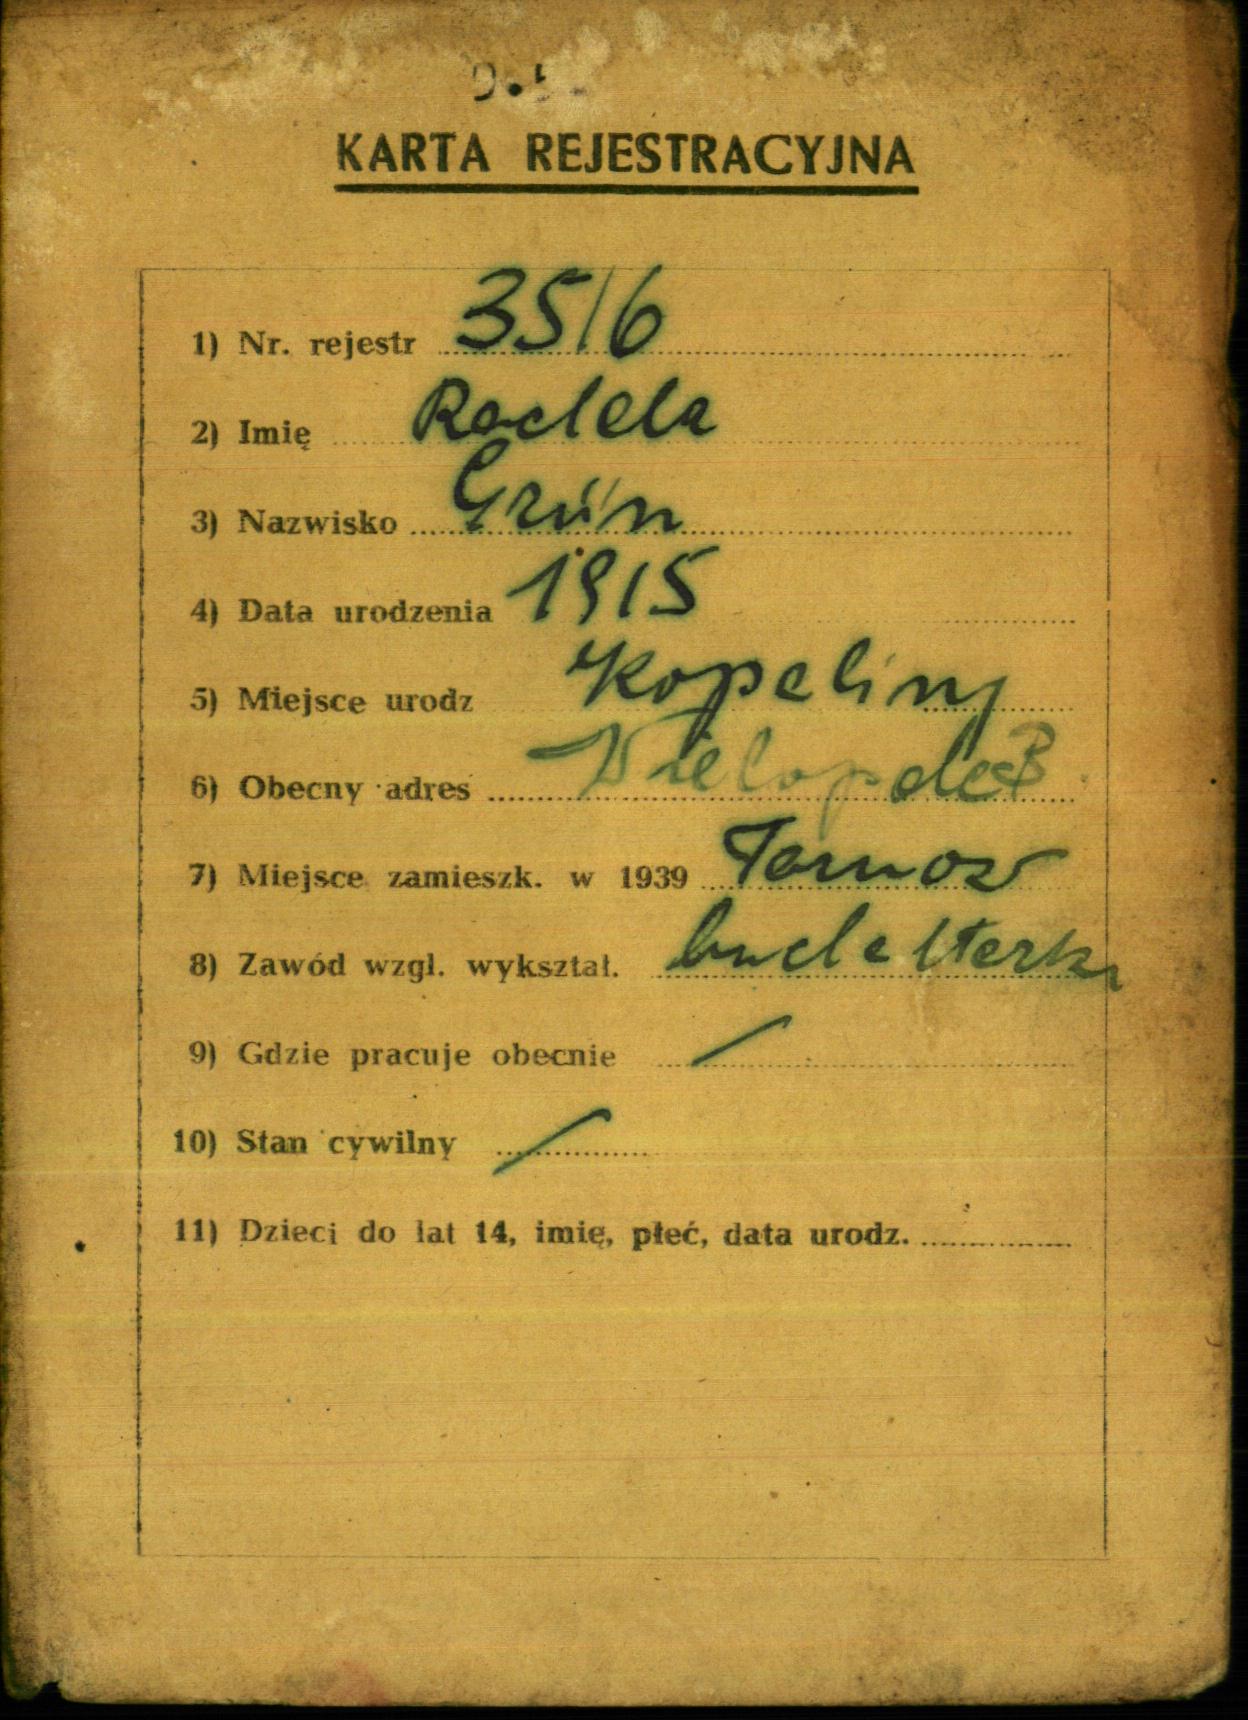 KARTA REJESTRACYJNA
1) Nr. rejestr 3516
2) Imię Rachela
3) Nazwisko Grün
4) Data urodzenia 1915
5) Miejsce urodz Kopaliny
6) Obecny adres
7) Miejsce zamieszk. w 1939 Tarnow
8) Zawód wzgl. wykształ. buchalterka
9) Gdzie pracuje obecnie /
10) Stan cywilny /
11) Dzieci do lat 14, imię, płeć, data urodz.